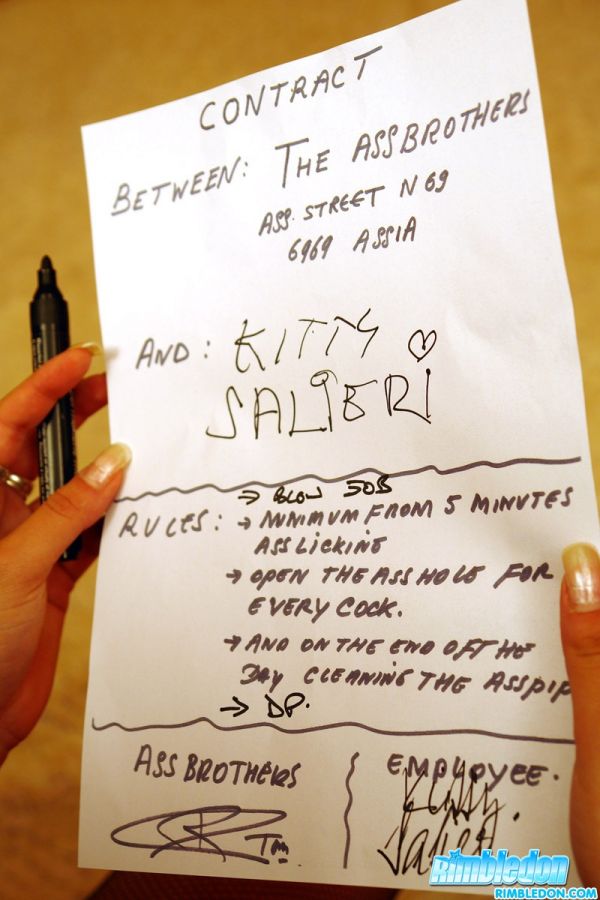 CONTRACT
BETWEEN: THE ASSBROTHERS
ASS. STREET N 69
6969 ASSIA
AND: KITTY
SALIERI
→ BLOW JOB
RULES: → MINIMUM FROM 5 MINUTES
ASSLICKING
→ OPEN THE ASSHOLE FOR
EVERY COCK.
→ AND ON THE END OFF THE
DAY CLEANING THE ASSPIP
→ DP.
ASS BROTHERS
EMPLOYEE.
Kitty
Salieri
Rimbledon
RIMBLEDON.COM